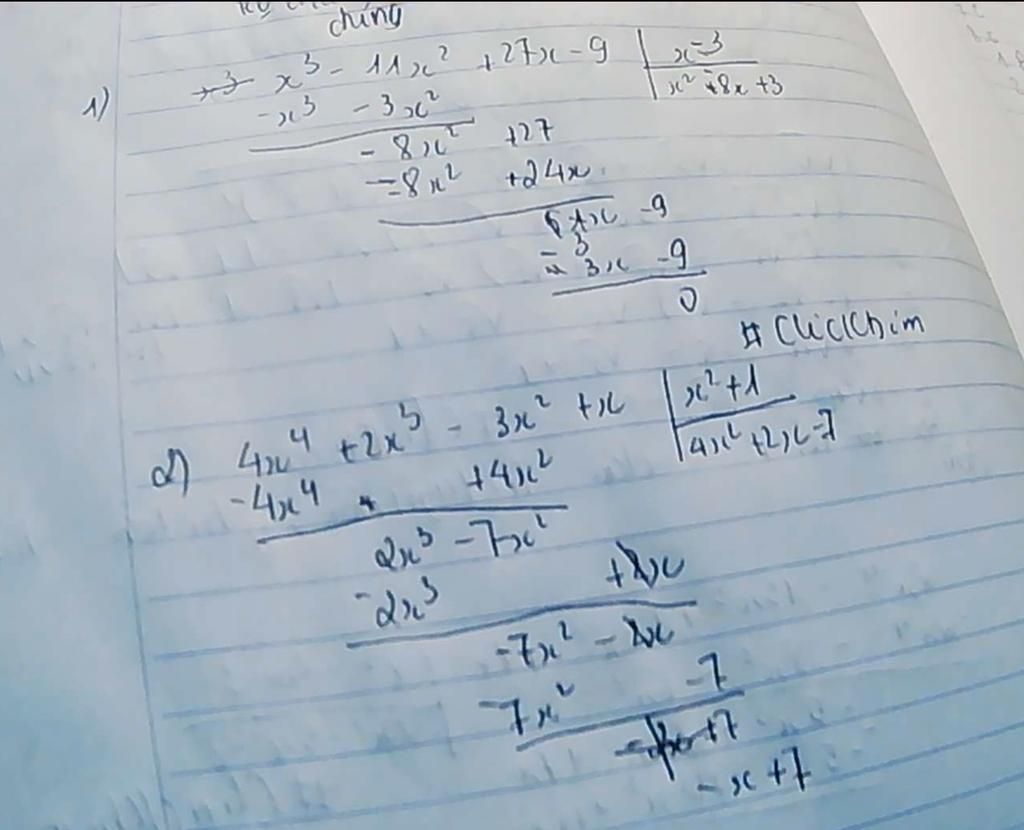 chúng
1) x³ - 11x² + 27x - 9 | x - 3
- x³ - 3x² | x² - 8x + 3
- 8x² + 27
- - 8x² + 24x
3x - 9
- 3x - 9
0
# CliclChim
2) 4x⁴ + 2x³ - 3x² + x | x² + 1
- 4x⁴ + 4x² | 4x² + 2x - 7
2x³ - 7x²
- 2x³ + 2x
- 7x² - x
- 7x² - 7
- x + 7